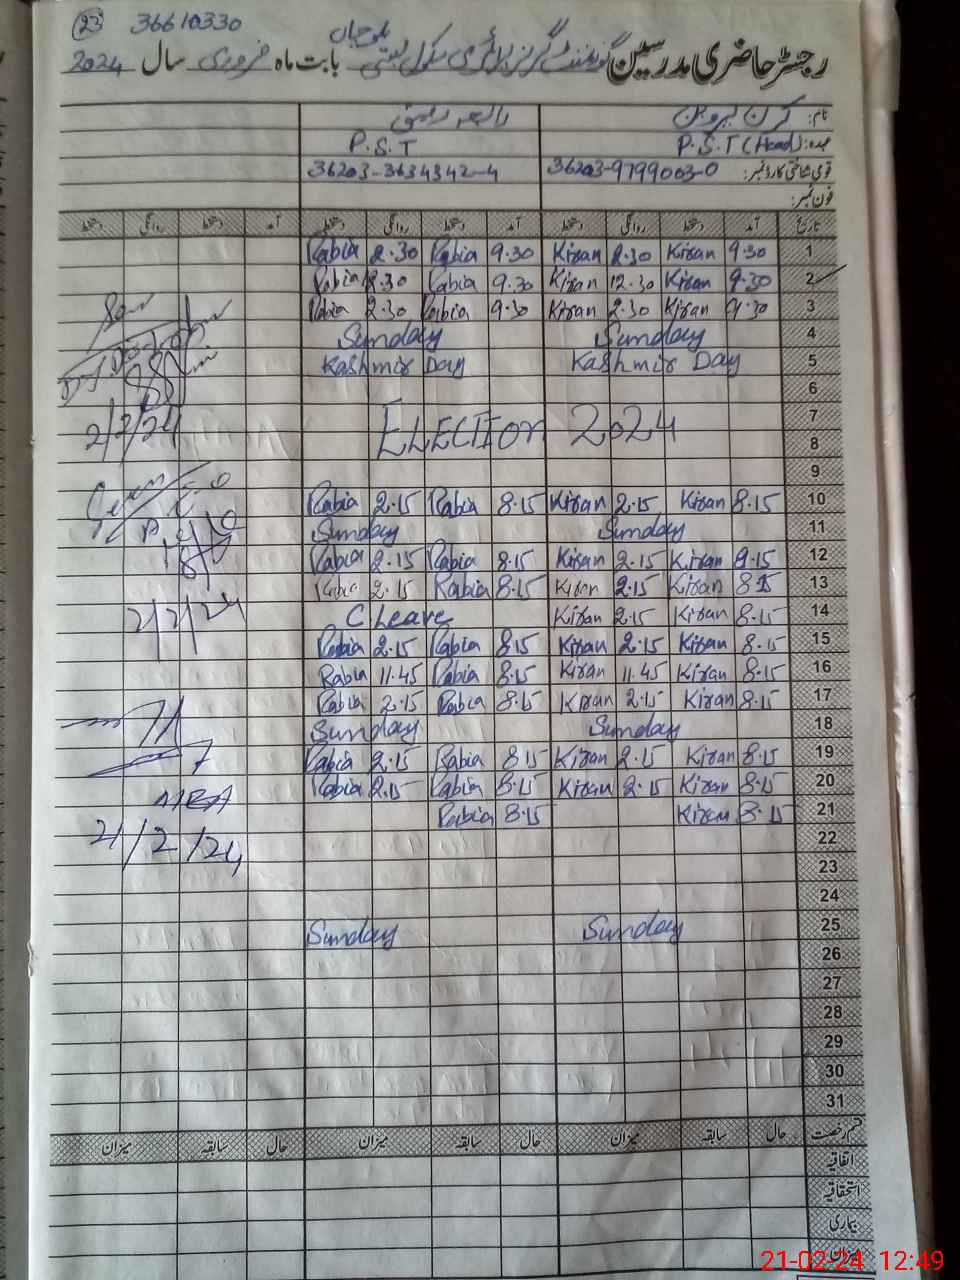 23 36610330
رجسٹر حاضری مدرسین گورنمنٹ گرلز پرائمری سکول بستی بلوچاں بابت ماہ فروری سال 2024
نام: کرن پروین رابعہ رفیق
عہدہ: P.S.T (Head) P.S.T
قومی شناختی کارڈ نمبر: 36203-9799003-0 36203-3634342-4
فون نمبر:
تاریخ آمد دستخط روانگی دستخط آمد دستخط روانگی دستخط آمد دستخط روانگی دستخط
1 9.30 Kiran 2.30 Kiran 9.30 Rabia 2.30 Rabia
2 9.30 Kiran 12.30 Kiran 9.30 Rabia 12.30 Rabia
3 9.30 Kiran 2.30 Kiran 9.30 Rabia 2.30 Rabia
4 Sunday Sunday
5 Kashmir Day Kashmir Day
6
7
ELECTION 2024
2/2/24
8
9
10 8.15 Kiran 2.15 Kiran 8.15 Rabia 2.15 Rabia
11 Sunday Sunday
12 8.15 Kiran 2.15 Kiran 8.15 Rabia 2.15 Rabia
13 8.15 Kiran 2.15 Kiran 8.15 Rabia 2.15 Rabia
14 8.15 Kiran 2.15 Kiran C Leave
15 8.15 Kiran 2.15 Kiran 8.15 Rabia 2.15 Rabia
16 8.15 Kiran 11.45 Kiran 8.15 Rabia 11.45 Rabia
17 8.15 Kiran 2.15 Kiran 8.15 Rabia 2.15 Rabia
18 Sunday Sunday
19 8.15 Kiran 2.15 Kiran 8.15 Rabia 2.15 Rabia
20 8.15 Kiran 2.15 Kiran 8.15 Rabia 2.15 Rabia
21 8.15 Kiran 8.15 Rabia
MEA
21/2/24
22
23
24
25 Sunday Sunday
26
27
28
29
30
31
قسم رخصت حال سابقہ میزان حال سابقہ میزان حال سابقہ میزان
اتفاقیہ
استحقاقیہ
بیماری
میزان
21-02-24 12:49